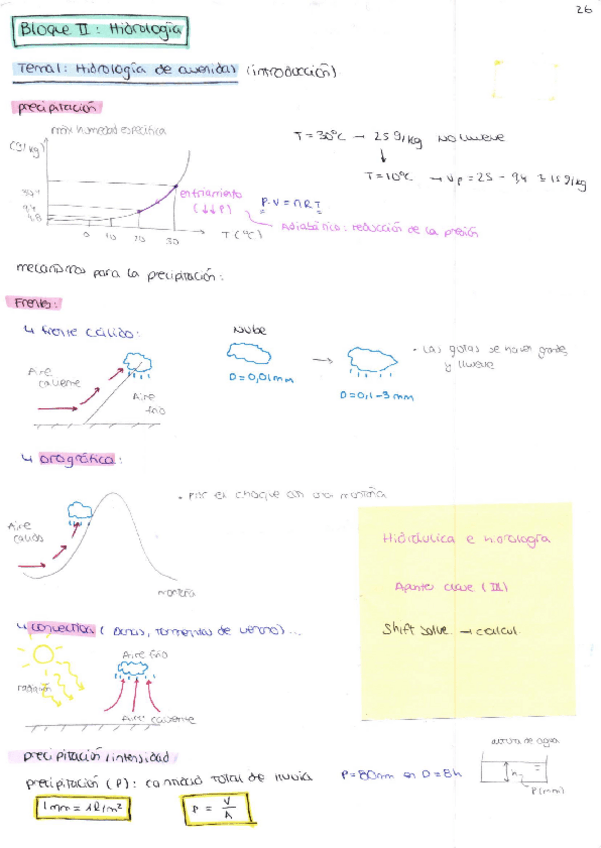 26
Bloque II: Hidrología
Tema 1: Hidrología de avenidas (introducción)
precipitación
máx humedad específica
(g/kg)
9,4
4.8
0 10 20 30
T (ºC)
enfriamiento
(↓↓P)
P.V = n R T
Adiabático: reducción de la presión
T = 30ºC → 25 g/kg no llueve
↓
T = 10ºC → Vp = 25 - 9,4 = 15 g/kg
mecanismos para la precipitación:
Frentes:
↳ frente cálido:
Aire
caliente
Aire
frío
Nube
D = 0,01mm
→
D = 0,1-3mm
· Las gotas se hacen grandes
y llueve
↳ orográfica:
Aire
cálido
montaña
· Por el choque con una montaña
Hidráulica e hidrología
Apuntes clase (III)
Shift solve → calcul.
↳ convectiva ( , tormentas de verano)...
radiación
Aire frío
Aire caliente
precipitación/intensidad
precipitación (P): cantidad total de lluvia
P = 80mm en D = 8h
1mm = 1l/m²
P = V/A
altura de agua
h
P(mm)